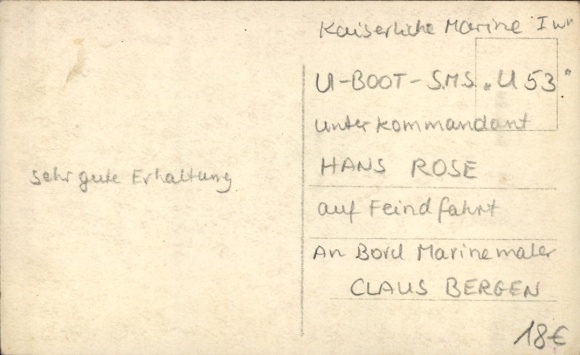 Kaiserliche Marine I WK
U-BOOT-S.M.S. "U 53"
unter Kommandant
HANS ROSE
auf Feindfahrt
An Bord Marinemaler
CLAUS BERGEN
sehr gute Erhaltung
18€